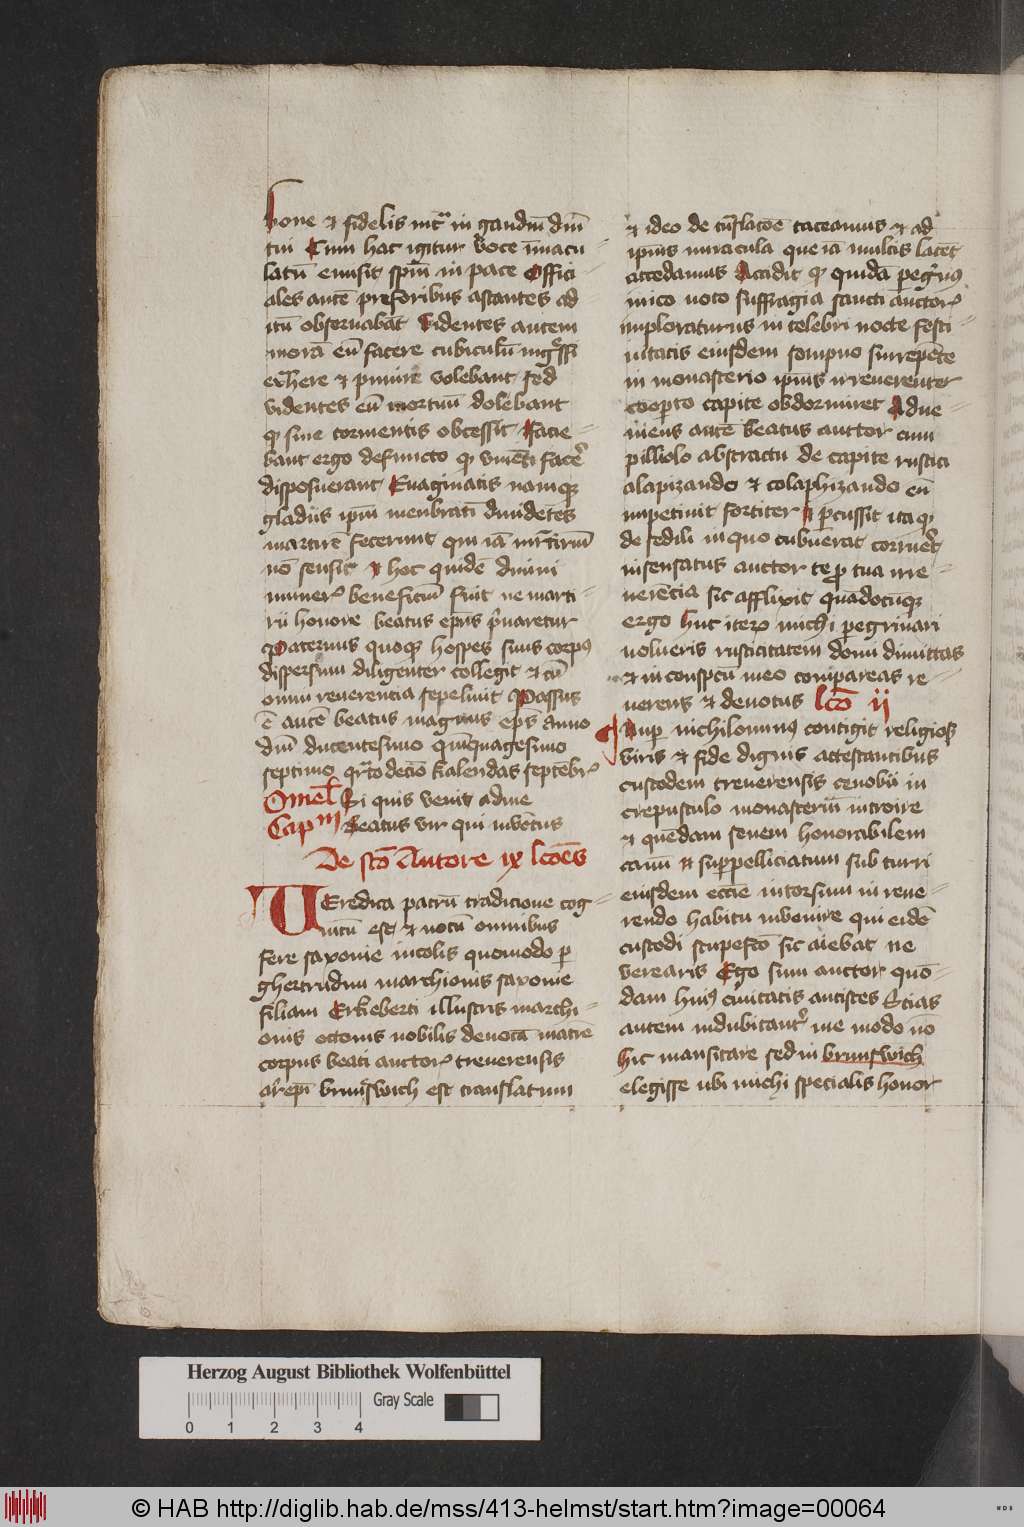 bone ⁊ fidelis intᵃ in gaudiū dn̄i
tui Cum hac igitur voce īmacu
latū emisit sp̄m in pace Offici
ales autē pre foribus astantes ad
itū obseruabāt Videntes autem
morā eū facere cubiculū ingssi
exͭhere ⁊ punire volebant sed
videntes eū mortuū dolebant
qͥ sine tormentis obcessit Facie
bant ergo defuncto qͥ viuēti facͤe
disposuerant Euaginatis namqꝫ
gladiis ip̄m menbratī diuidētes
martirē fecerunt qui iā mͬtiriū
nō sensit ⁊ hoc quidē diuini
munerꝭ beneficiū fuit ne marti
rii honore beatus ep̄us pͥuaretur
Paternus quoqꝫ hospes suus corpꝰ
dispersum diligenter collegit ⁊ cū
omni reuerentia sepeliuit Passus
ē autē beatus magnus ep̄s anno
dn̄i ducentesimo quīquagesimo
septimo qͬto decīo kalendas septēbrꝭ
Omel̄ Si quis venit ad me
Capᵐ Beatus vir qui inuētus
De sc̄o Autore ix lcōēs
VEredica patrū tradicione cog
nitū est ⁊ notū omnibus
fere saxonie incolis quomodo ꝑ
ghertrudim marchionis saxonie
filiam Erkeberti illustris marchi
onis ottonis nobilis deuotā matrē
corpus beati auctorꝭ treuerensis
arͨepī brunswich est translatum
⁊ ideo de tn̄slacōe taceamus ⁊ ad
ip̄ius miracula que iā multis latēt
accedamus Accidit qͥ quidā peg̃nꝰ
inico noto suffragia sancti auctorꝭ
imploraturus in celebri nocte festi
uitatis eiusdem sompno surrepēte
in monasterio ip̄ius irreuerenter
cooꝑto capite obdormiret Adue
niens autē beatus auctor cum
pilliolo abstractu de capite rustici
alapizando ⁊ colaphizando eū
impetiuit fortiter ⁊ ꝑcussit ita qͥ
de sedili in quo cubuerat corruēͭ
insensatus auctor te ꝓ tua irre
uerēcia sic afflixit quādocūqꝫ
ergo huc iterꝝ michi peregrinari
uolueris rusticitatem domi dimittas
⁊ in conspectū meo compareas re
uerens ⁊ deuotus lcō ii
Nuꝑ nichilominꝰ contigit religiosꝭ
viris ⁊ fide dignis attestantibus
custodem treuerensis cenobii in
crepusculo monasteriū introire
⁊ quēdam senem honorabilem
canū ⁊ suꝑpelliciatum sub turri
eiusdem eccīe introrsum in reue
rendo habitu inuenire qui eidē
custodi stupefcō sic aiebat ne
verearis Ego sum auctor quō
dam huiꝰ ciuitatis antistes Scias
autem indubitantͬ me modo nō
hic mansitare sed in brunswich
elegisse ubi michi specialis honor
Herzog August Bibliothek Wolfenbüttel
0 1 2 3 4 Gray Scale
© HAB http://diglib.hab.de/mss/413-helmst/start.htm?image=00064
WDB